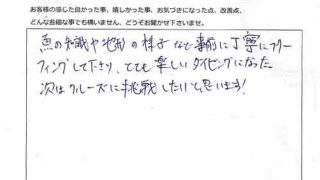 お客様の感じた良かった事、嬉しかった事、お気づきになった点、改善点、
どんな些細な事でも構いません、どうぞお聞かせ下さいませ。
魚の知識や地形の様子など事前に丁寧にブリー
フィングして下さり、とても楽しいダイビングになった
次はクルーズに挑戦したいと思います!